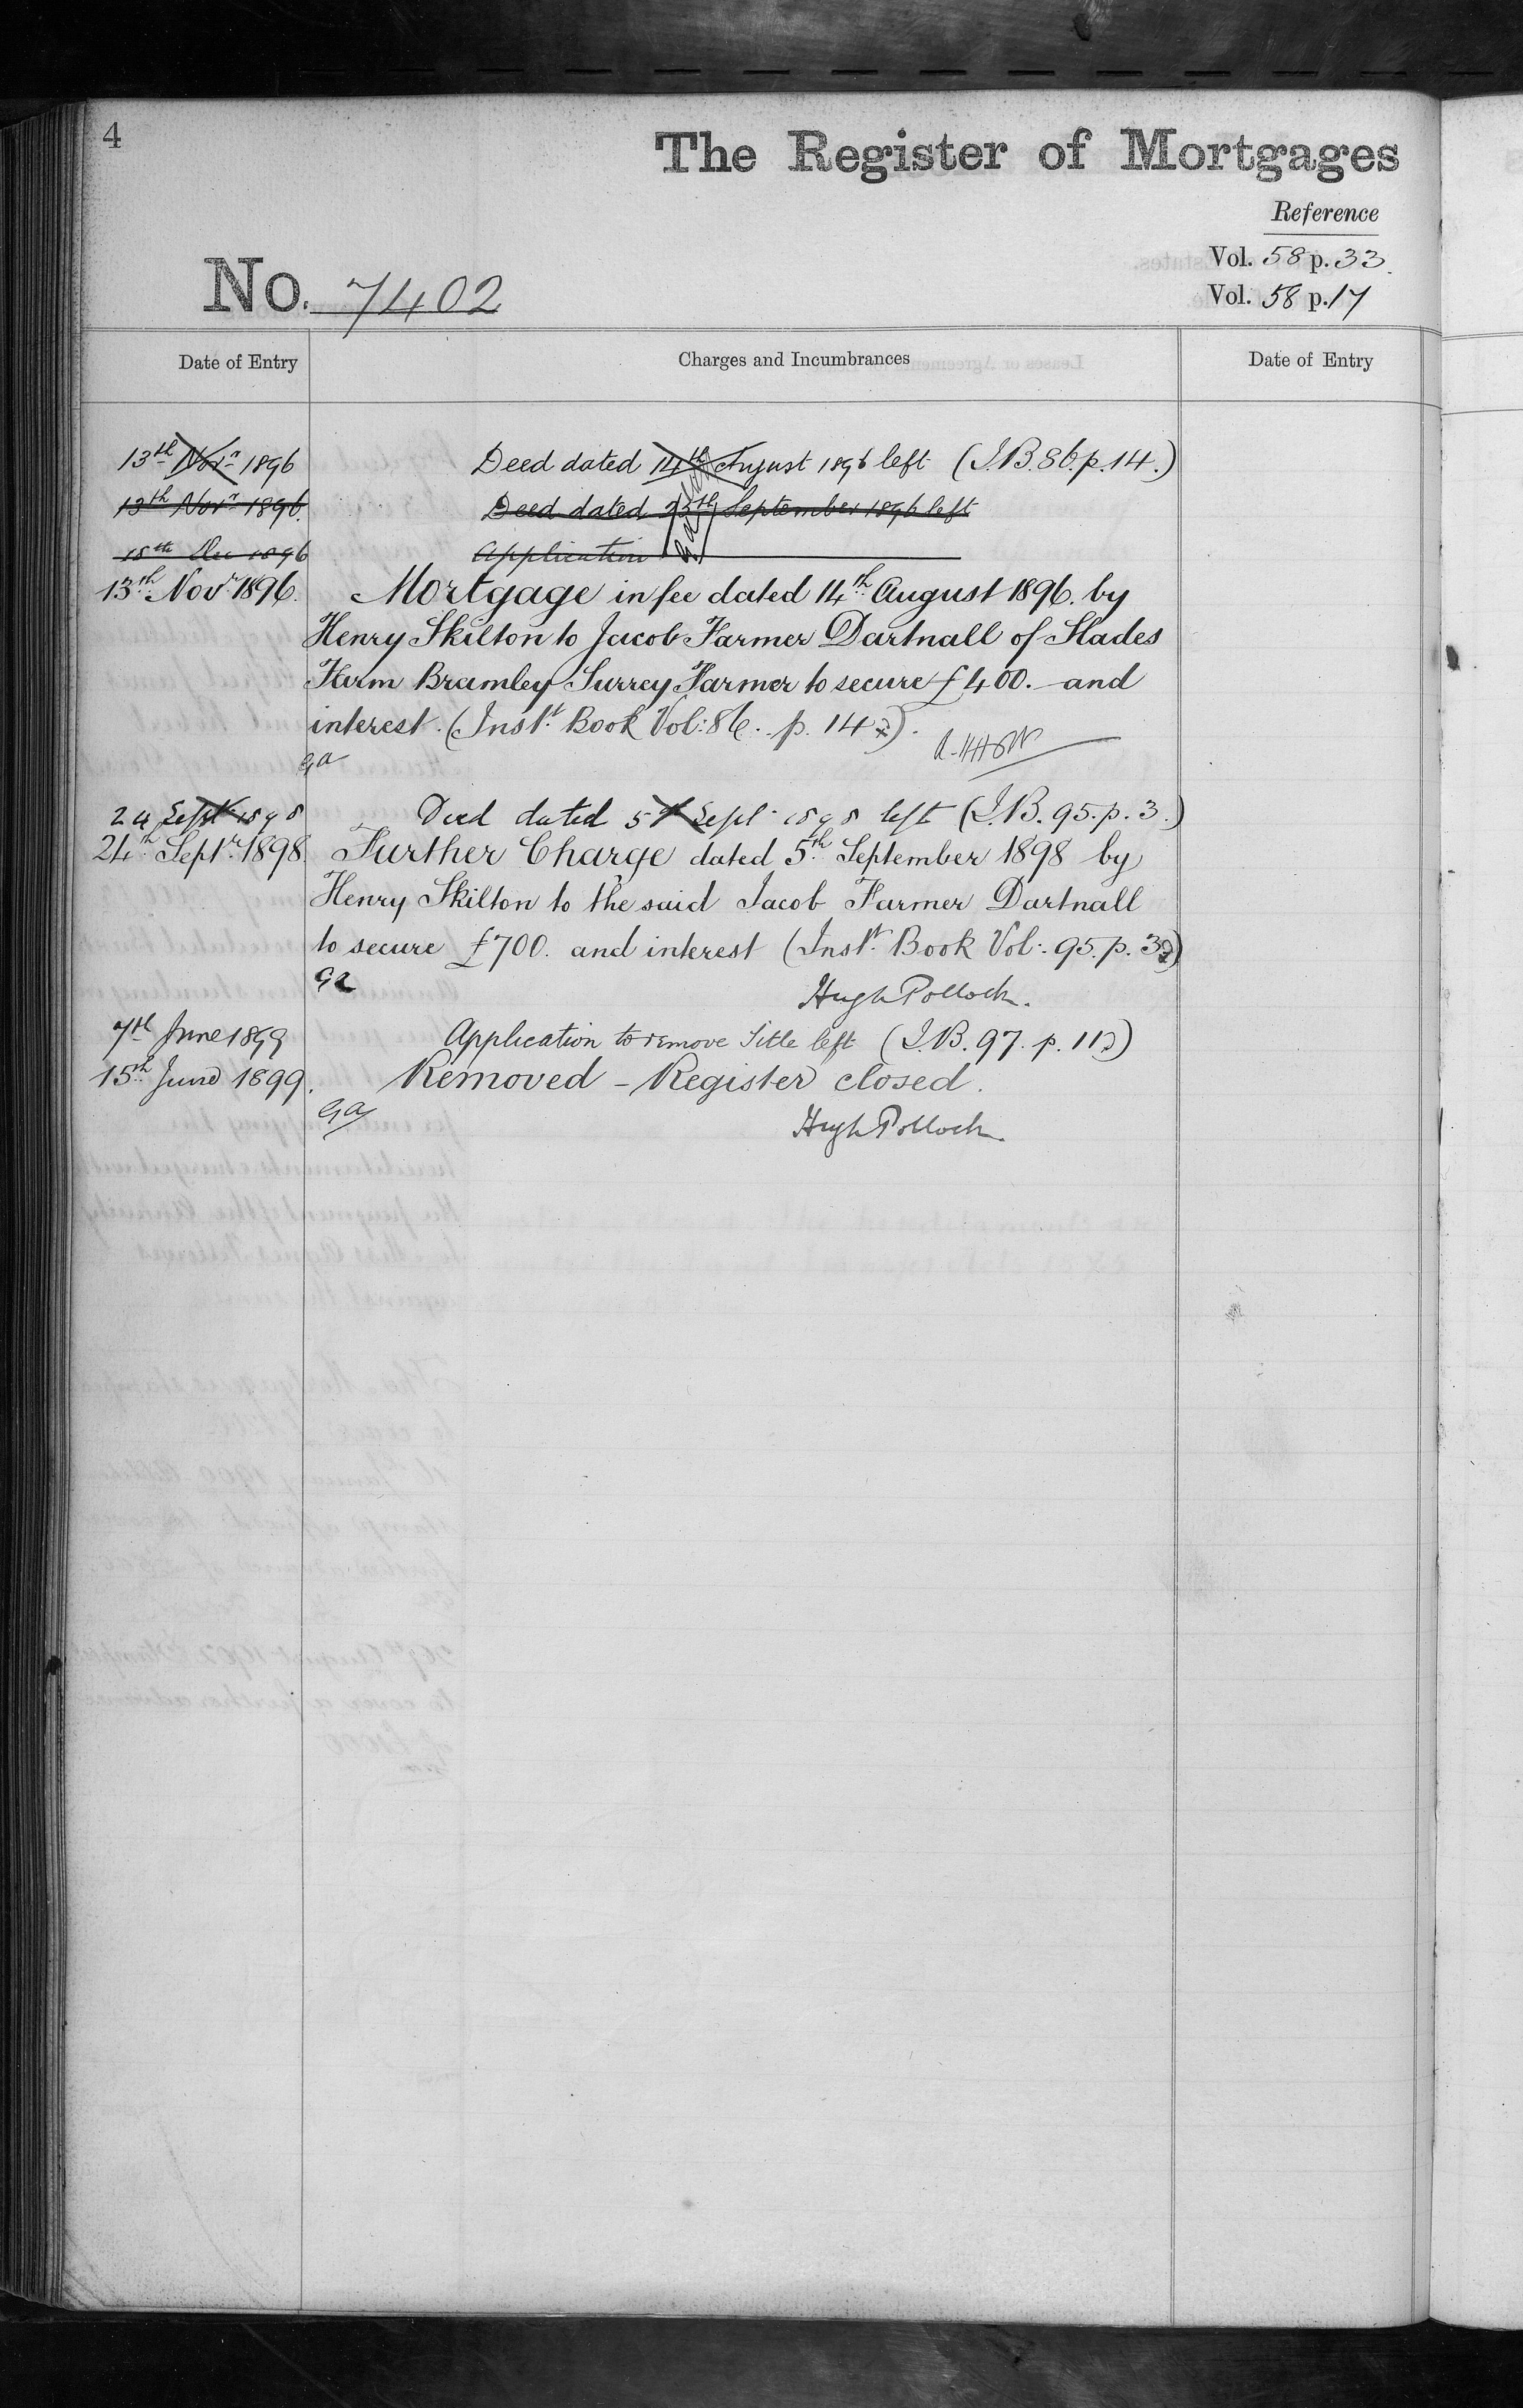 4
The Register of Mortgages
Reference
Vol. 58 p. 33.
No. 7402
Vol. 58 p. 17
Date of Entry Charges and Incumbrances Date of Entry
13th Novr 1896 Deed dated 14th August 1896 left (I.B. 86. p. 14.)
13th Novr 1896. Deed dated 25th September 1896 left
18th Dec 1896 Application
13th Novr 1896. Mortgage in fee dated 14th August 1896. by
Henry Skilton to Jacob Farmer Dartnall of Slades
Farm Bramley Surrey Farmer to secure £400. and
interest. (Inst. Book Vol: 86. p. 14).
24 Sept 1898 Deed dated 5th Sept 1898 left (I.B. 95. p. 3.)
24th Septr 1898. Further Charge dated 5th September 1898 by
Henry Skilton to the said Jacob Farmer Dartnall
to secure £700. and interest (Inst. Book Vol: 95. p. 3)
Hugh Pollock.
7th June 1899 Application to remove Title left (I.B. 97. p. 11)
15th June 1899. Removed - Register closed.
Hugh Pollock.